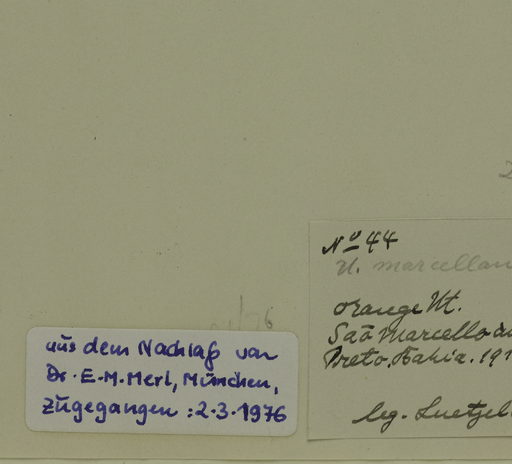 aus dem Nachlaß von
Dr. E. M. Merl, München,
zugegangen : 2.3.1976
No 44
U. marcellan
orange Ut.
Saõ Marcello am
Preto, Bahia. 191
leg. Luetzel